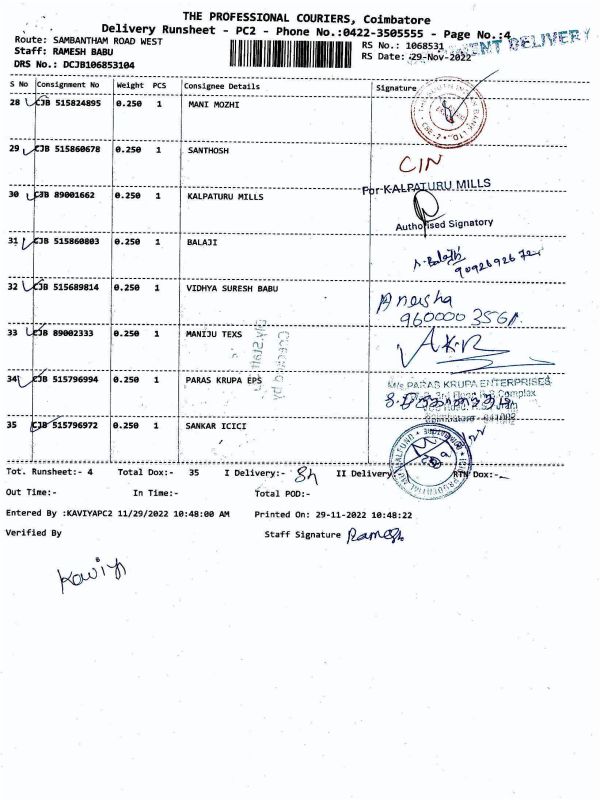 THE PROFESSIONAL COURIERS, Coimbatore
Delivery Runsheet - PC2 - Phone No.:0422-3505555 - Page No.:4
Route: SAMBANTHAM ROAD WEST
RS No.: 1068531
DELIVERY
Staff: RAMESH BABU
RS Date: 29-Nov-2022
DRS No.: DCJB106853104
S No Consignment No Weight PCS Consignee Details Signature
28 CJB 515824895 0.250 1 MANI MOZHI
29 CJB 515860678 0.250 1 SANTHOSH
CIN
30 CJB 89001662 0.250 1 KALPATURU MILLS
For KALPATURU MILLS
Authorised Signatory
31 CJB 515860803 0.250 1 BALAJI
32 CJB 515689814 0.250 1 VIDHYA SURESH BABU
Aneesha
33 CJB 89002333 0.250 1 MANIJU TEXS
34 CJB 515796994 0.250 1 PARAS KRUPA EPS
M/s PARAS KRUPA ENTERPRISES
35 CJB 515796972 0.250 1 SANKAR ICICI
Tot. Runsheet:- 4 Total Dox:- 35 I Delivery:- II Delivery RTN Dox:-
Out Time:- In Time:- Total POD:-
Entered By :KAVIYAPC2 11/29/2022 10:48:00 AM Printed On: 29-11-2022 10:48:22
Verified By Staff Signature Ramesh
Kaviya